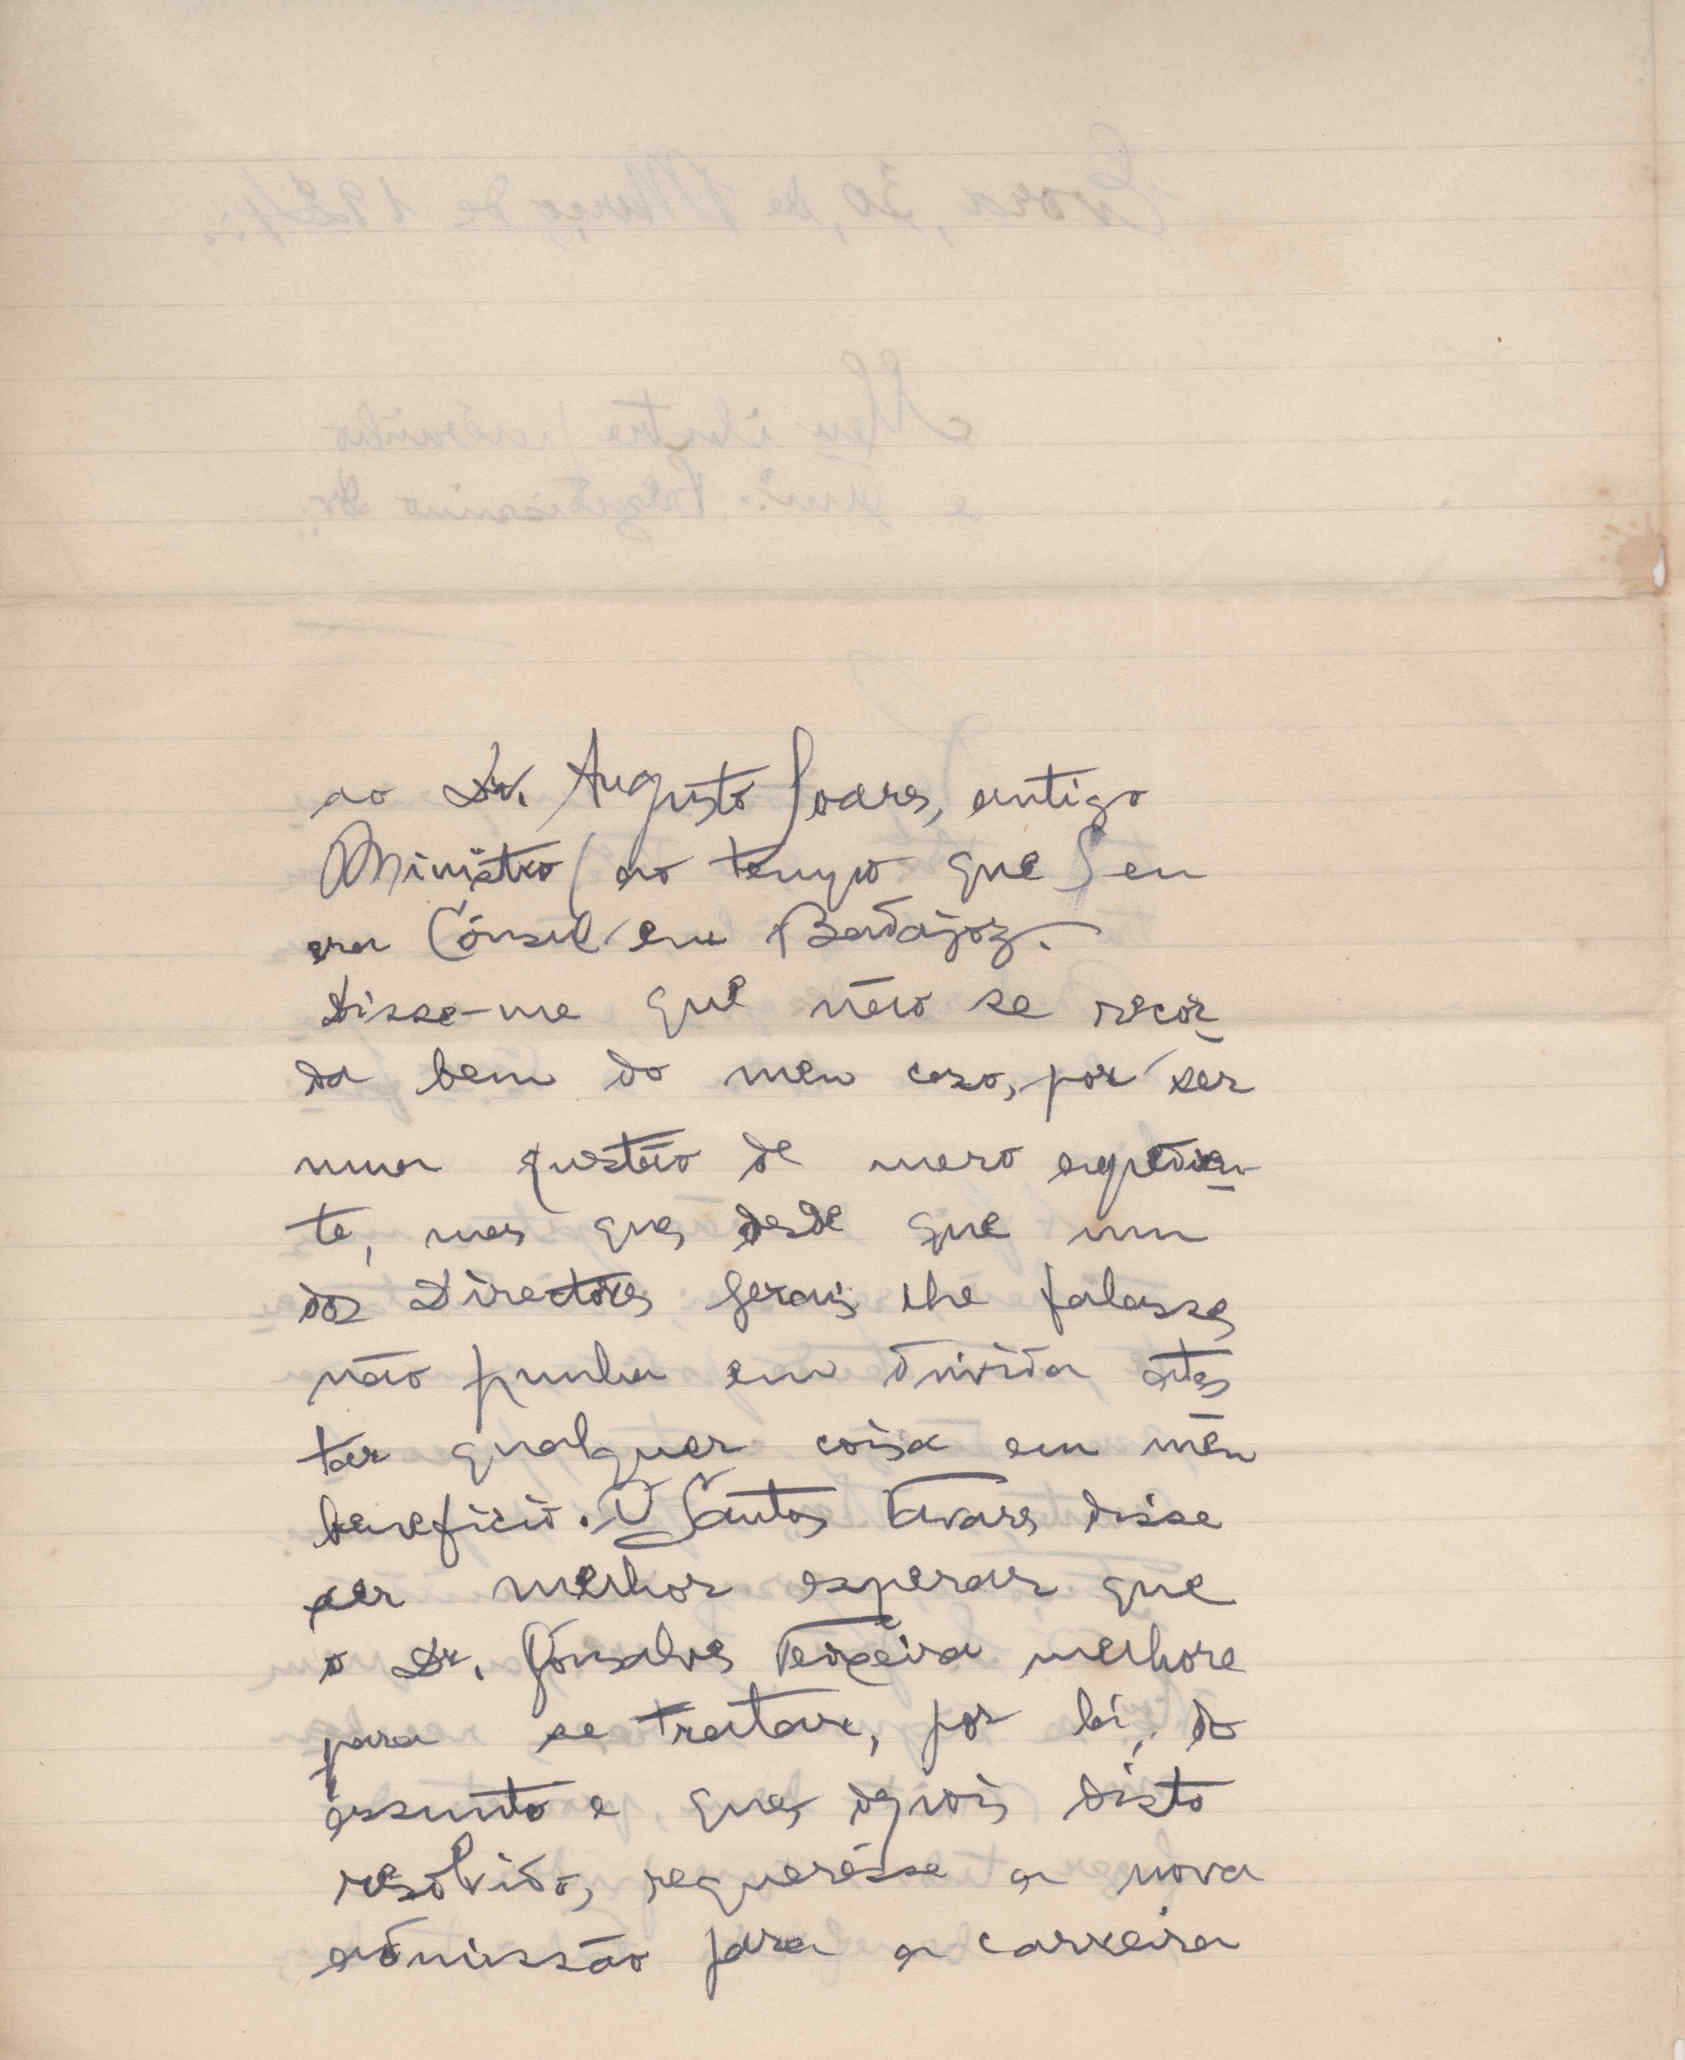 ao Dr. Augusto Soares, antigo
Ministro (ao tempo que eu
era Cónsul em Badajoz.
Disse-me que não se recor-
da bem do meu caso, por sêr
uma questão de mero expedien-
te, mas que, desde que um
dos Directores Gerais lhe falasse,
não punha em dúvida ates-
tar qualquer coisa em meu
beneficio. O Santos Tavares disse
ser melhor esperar que
o Dr. Gonsalves Teixeira melhore
para se tratar, por lá, do
assunto e que, depois disto
resolvido, requerêsse a nova
admissão para a carreira